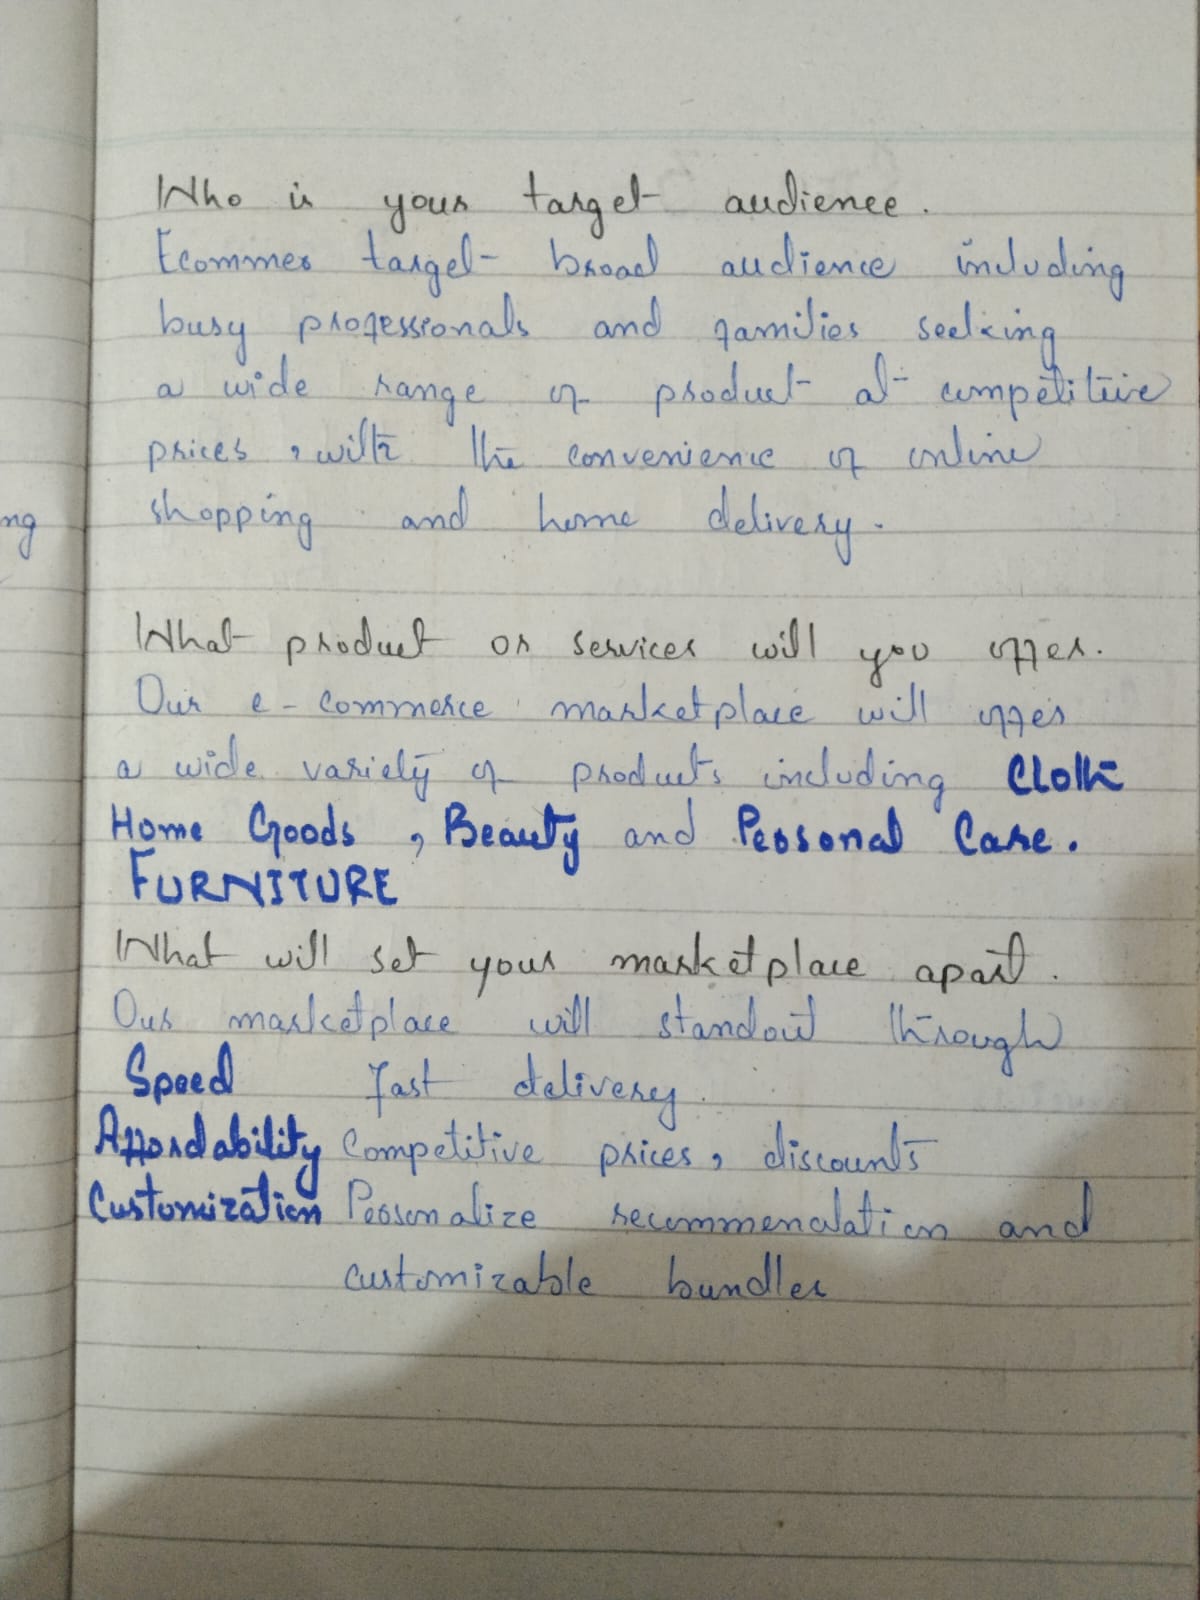 Who is your target audience.
Ecommer target broad audience including
busy professionals and families seeking
a wide range of product at competitive
prices, with the convenience of online
ng
shopping and home delivery.
What product or services will you offer.
Our e-commerce marketplace will offer
a wide variety of products including Cloth
Home Goods, Beauty and Personal Care.
FURNITURE
What will set your marketplace apart.
Our marketplace will standout through
Speed fast delivery.
Affordability Competitive prices, discounts
Customization Personalize recommendation and
customizable bundles